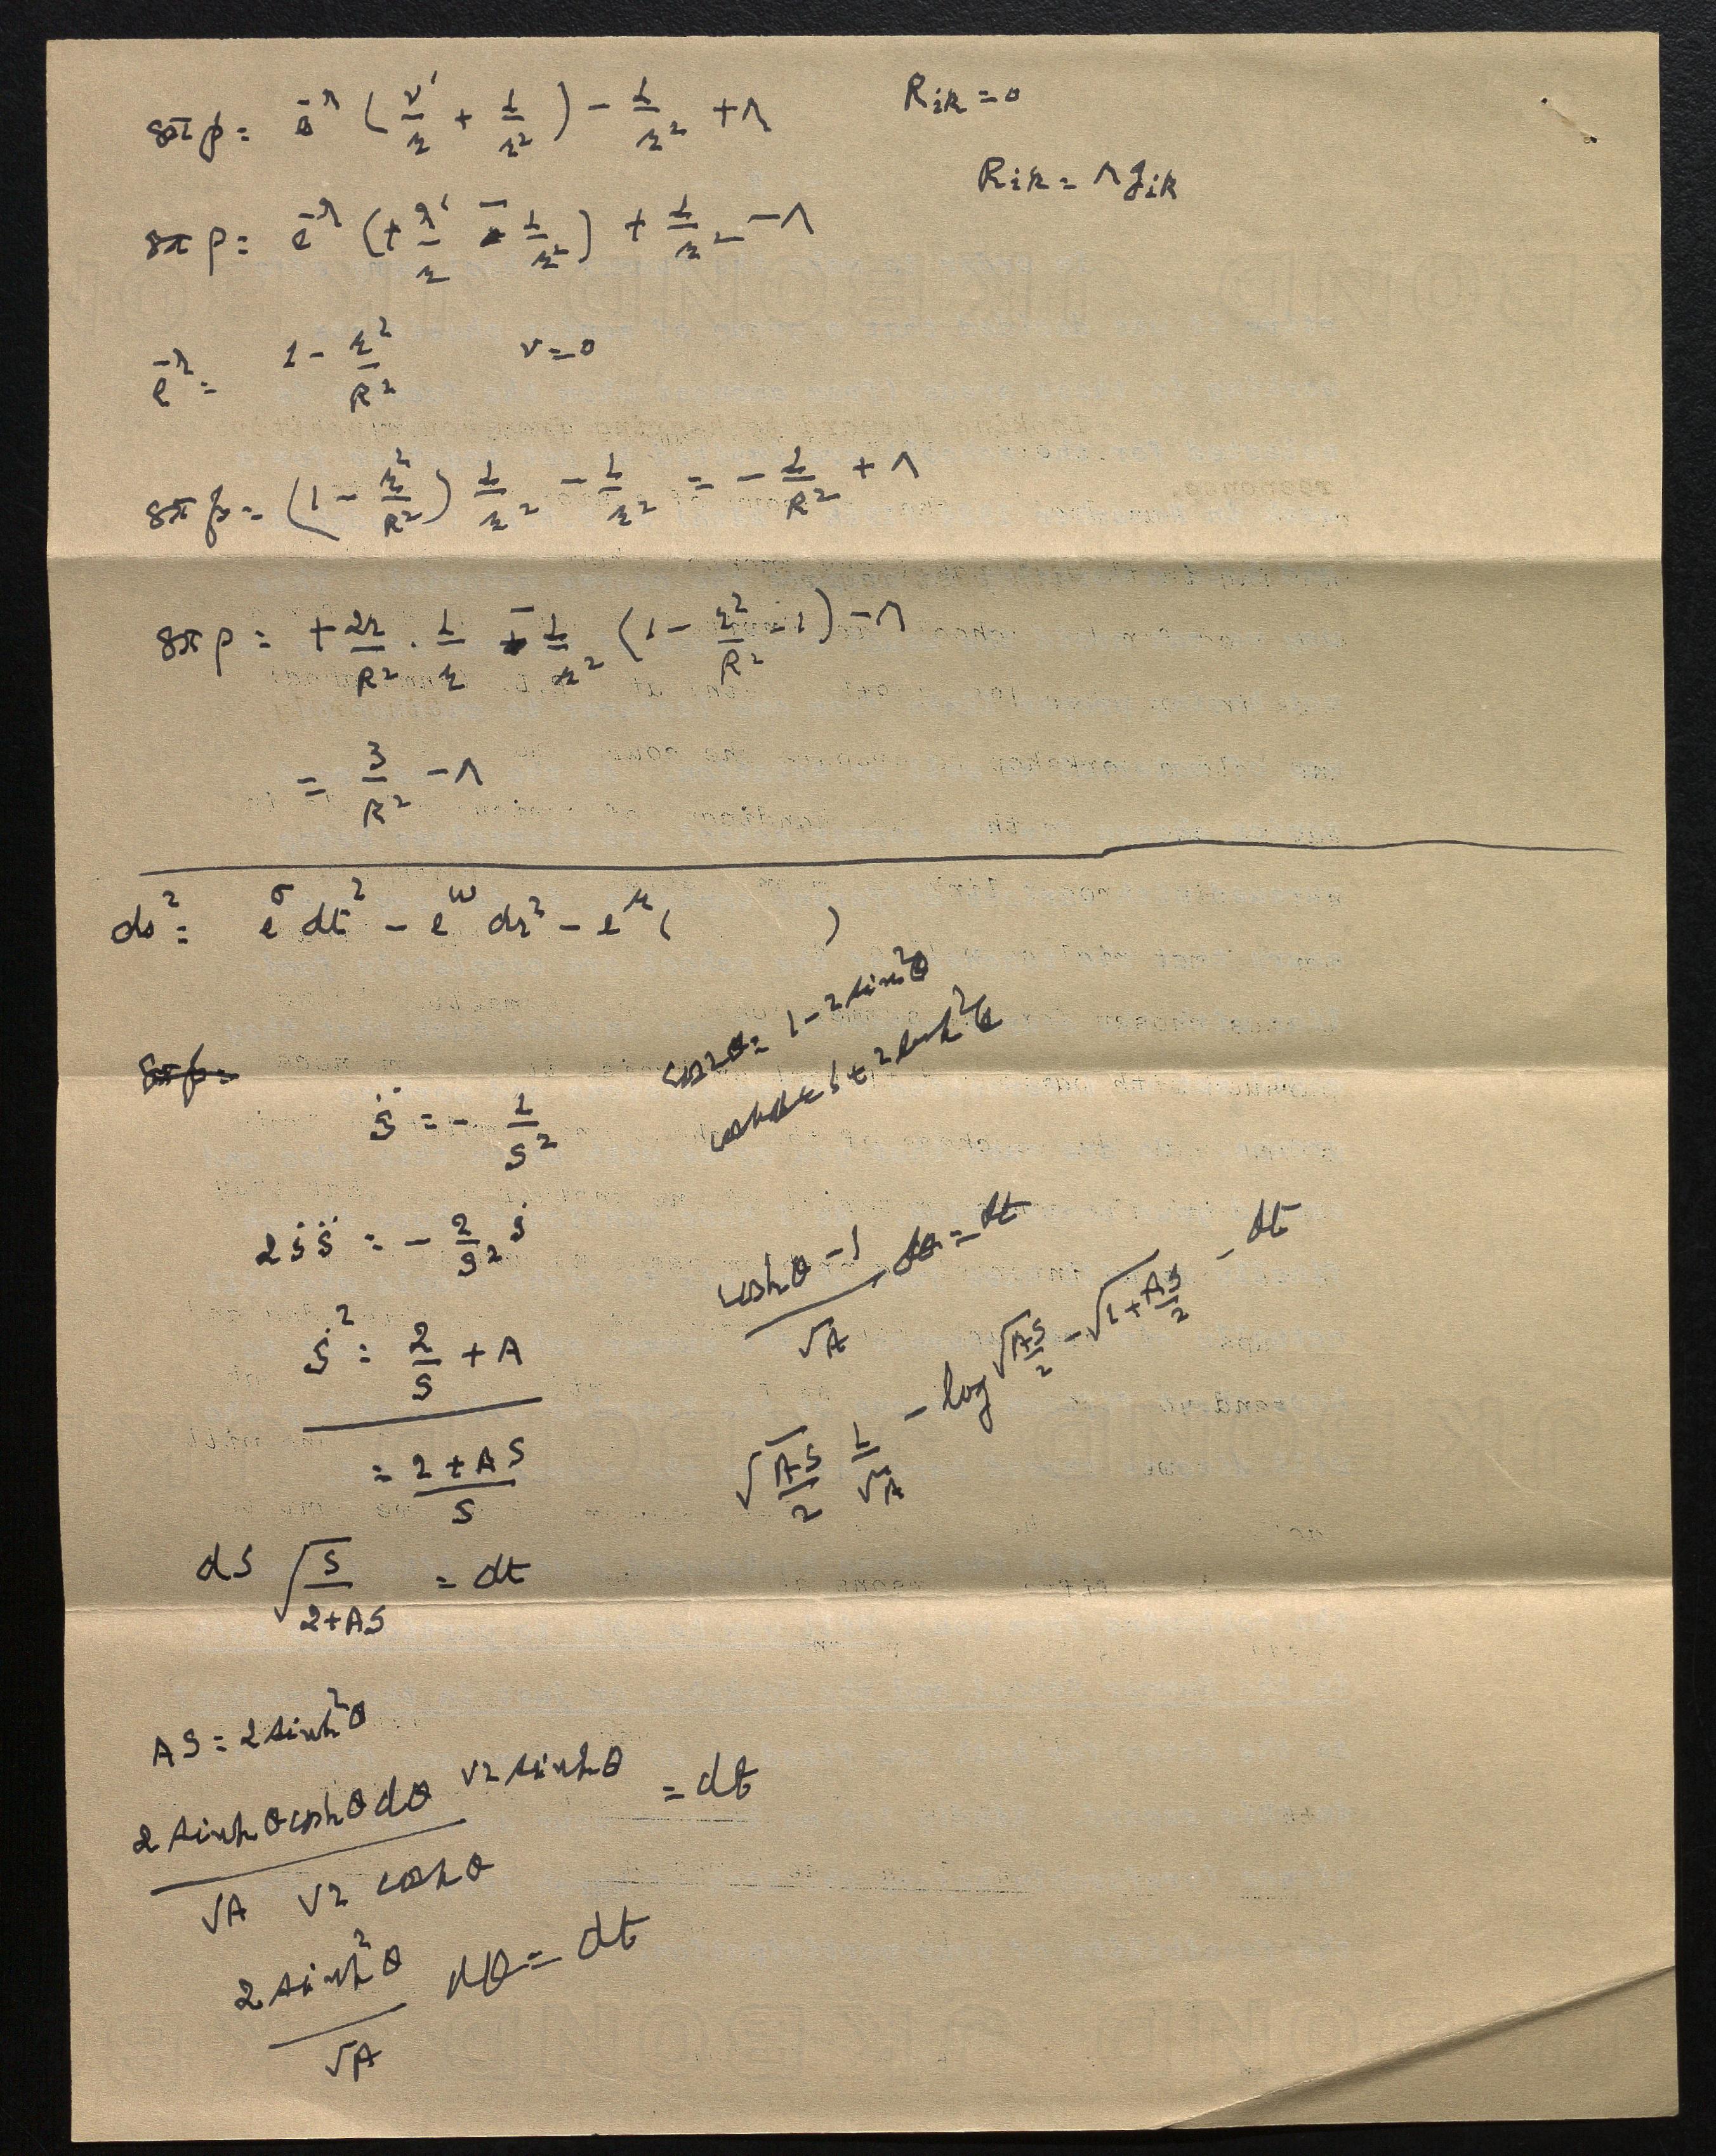 8πp = e^{-λ} (ν'/r + 1/r²) - 1/r² + Λ
R_{ik} = 0
R_{ik} = Λ g_{ik}
8πρ = e^{-λ} (+ λ'/r - 1/r²) + 1/r² - Λ
e^{-λ} = 1 - r²/R²    ν = 0
8πp = (1 - r²/R²) 1/r² - 1/r² = - 1/R² + Λ
8πρ = + 2r/R² · 1/r - 1/r² (1 - r²/R² - 1) - Λ
= 3/R² - Λ
ds² = e^σ dt² - e^ω dr² - e^μ (      )
cos2θ = 1 - 2 sin²θ
8πp =
S̈ = - 1/S²
2ṠS̈ = - 2/S² Ṡ
Ṡ² = 2/S + A
= (2 + AS)/S
dS √(S/(2+AS)) = dt
(coshθ - 1)/√A dθ = dt
√(AS/2) 1/√A - log √(AS/2) - √(1 + AS/2) - dt
AS = 2 sinh²θ
(2 sinhθ coshθ dθ √2 sinhθ)/(√A √2 coshθ) = dt
(2 sinh²θ)/√A dθ = dt